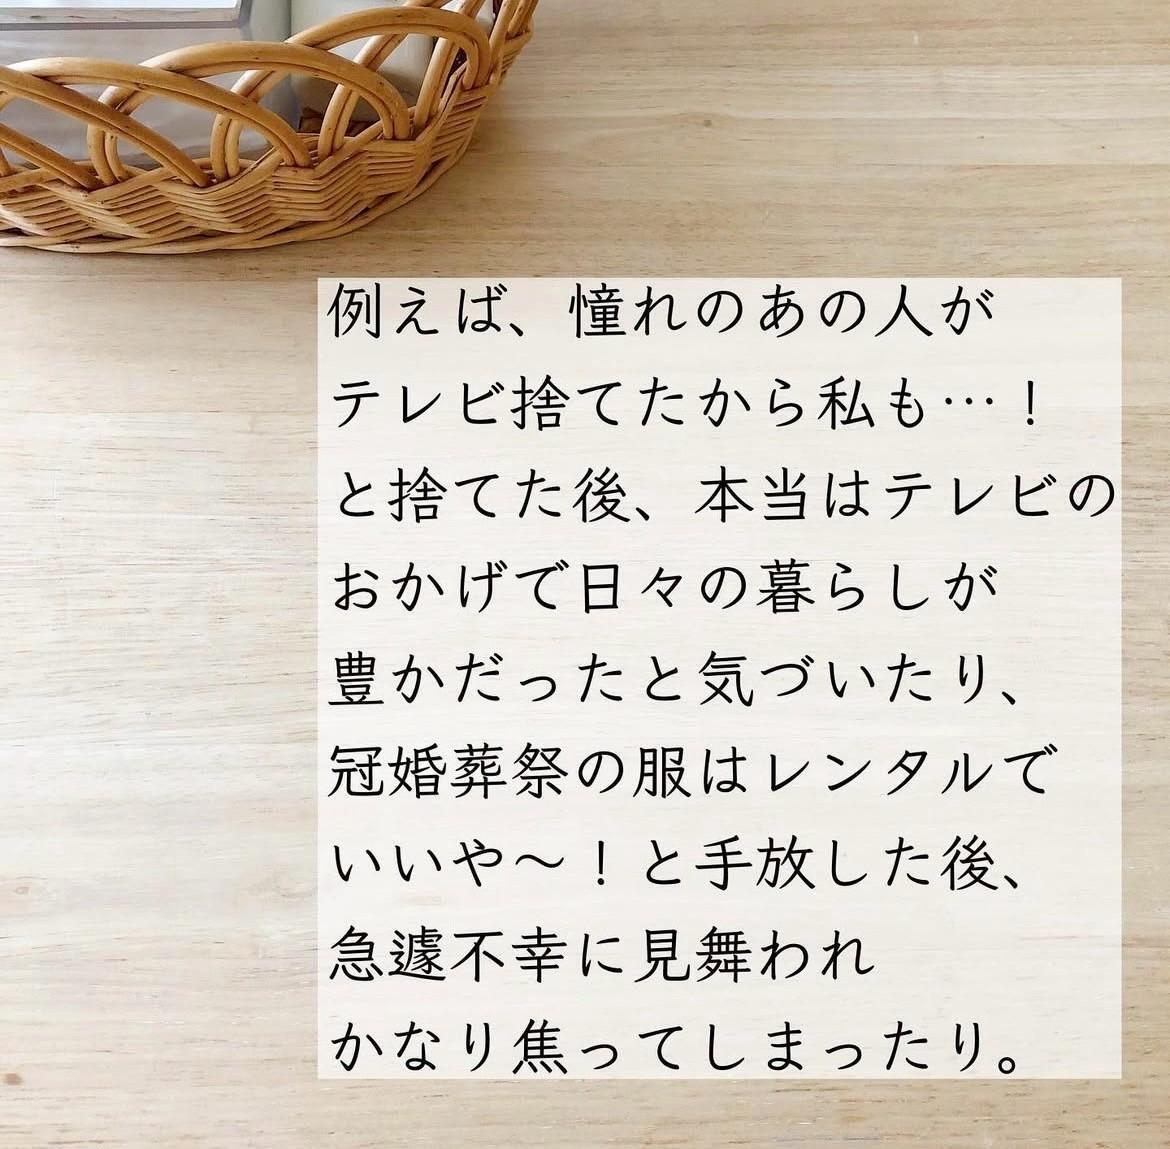 例えば、憧れのあの人が
テレビ捨てたから私も…！
と捨てた後、本当はテレビの
おかげで日々の暮らしが
豊かだったと気づいたり、
冠婚葬祭の服はレンタルで
いいや～！と手放した後、
急遽不幸に見舞われ
かなり焦ってしまったり。